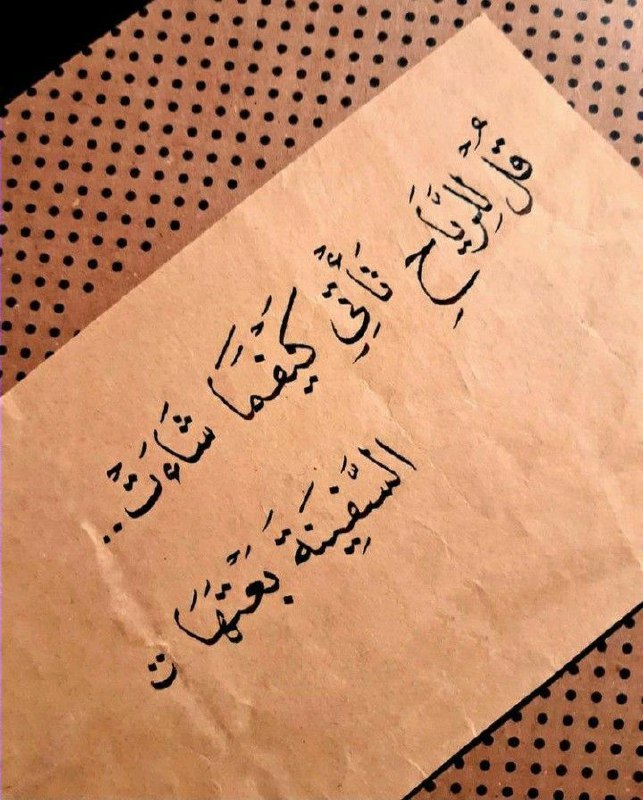 قُلْ لِلرِّيَاحِ تَأْتِي كَيْفَمَا شَاءَتْ..
السَّفِينَةَ بَعْتُهَا